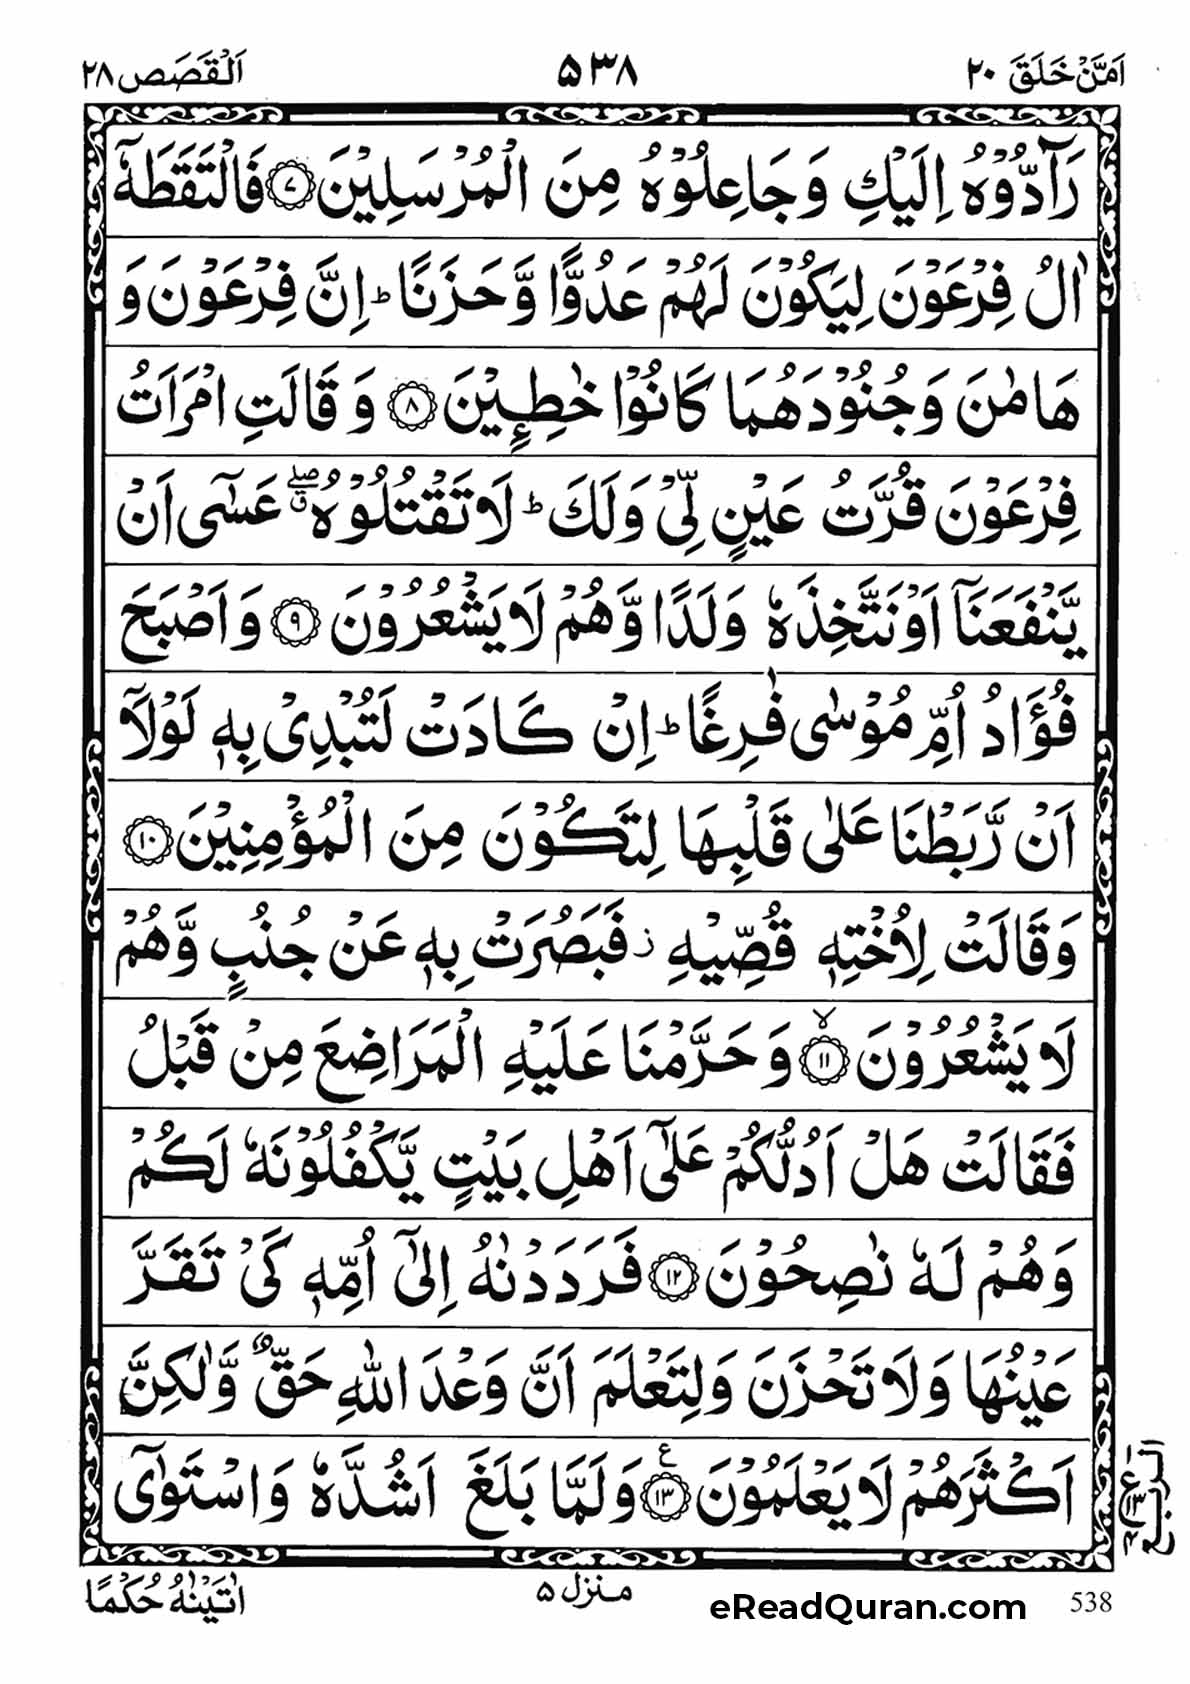 اَمَّنْ خَلَقَ ٢٠
٥٣٨
اَلْقَصَص ٢٨
رَآدُّوْهُ اِلَيْكِ وَجَاعِلُوْهُ مِنَ الْمُرْسَلِيْنَ ٧ فَالْتَقَطَهٗۤ
اٰلُ فِرْعَوْنَ لِيَكُوْنَ لَهُمْ عَدُوًّا وَّحَزَنًا ؕ اِنَّ فِرْعَوْنَ وَ
هَامٰنَ وَجُنُوْدَهُمَا كَانُوْا خٰطِـِٕيْنَ ٨ وَقَالَتِ امْرَاَتُ
فِرْعَوْنَ قُرَّتُ عَيْنٍ لِّيْ وَلَكَ ؕ لَا تَقْتُلُوْهُ ۖۗ عَسٰۤى اَنْ
يَّنْفَعَنَاۤ اَوْ نَتَّخِذَهٗ وَلَدًا وَّهُمْ لَا يَشْعُرُوْنَ ٩ وَاَصْبَحَ
فُؤَادُ اُمِّ مُوْسٰى فٰرِغًا ؕ اِنْ كَادَتْ لَتُبْدِيْ بِهٖ لَوْلَاۤ
اَنْ رَّبَطْنَا عَلٰى قَلْبِهَا لِتَكُوْنَ مِنَ الْمُؤْمِنِيْنَ ١٠
وَقَالَتْ لِاُخْتِهٖ قُصِّيْهِ ؗ فَبَصُرَتْ بِهٖ عَنْ جُنُبٍ وَّهُمْ
لَا يَشْعُرُوْنَ ۙ ١١ وَحَرَّمْنَا عَلَيْهِ الْمَرَاضِعَ مِنْ قَبْلُ
فَقَالَتْ هَلْ اَدُلُّكُمْ عَلٰۤى اَهْلِ بَيْتٍ يَّكْفُلُوْنَهٗ لَكُمْ
وَهُمْ لَهٗ نٰصِحُوْنَ ١٢ فَرَدَدْنٰهُ اِلٰۤى اُمِّهٖ كَيْ تَقَرَّ
عَيْنُهَا وَلَا تَحْزَنَ وَلِتَعْلَمَ اَنَّ وَعْدَ اللّٰهِ حَقٌّ وَّلٰكِنَّ
اَكْثَرَهُمْ لَا يَعْلَمُوْنَ ١٣ ع وَلَمَّا بَلَغَ اَشُدَّهٗ وَاسْتَوٰۤى
الربع
اٰتَيْنٰهُ حُكْمًا
منزل ٥
eReadQuran.com
538